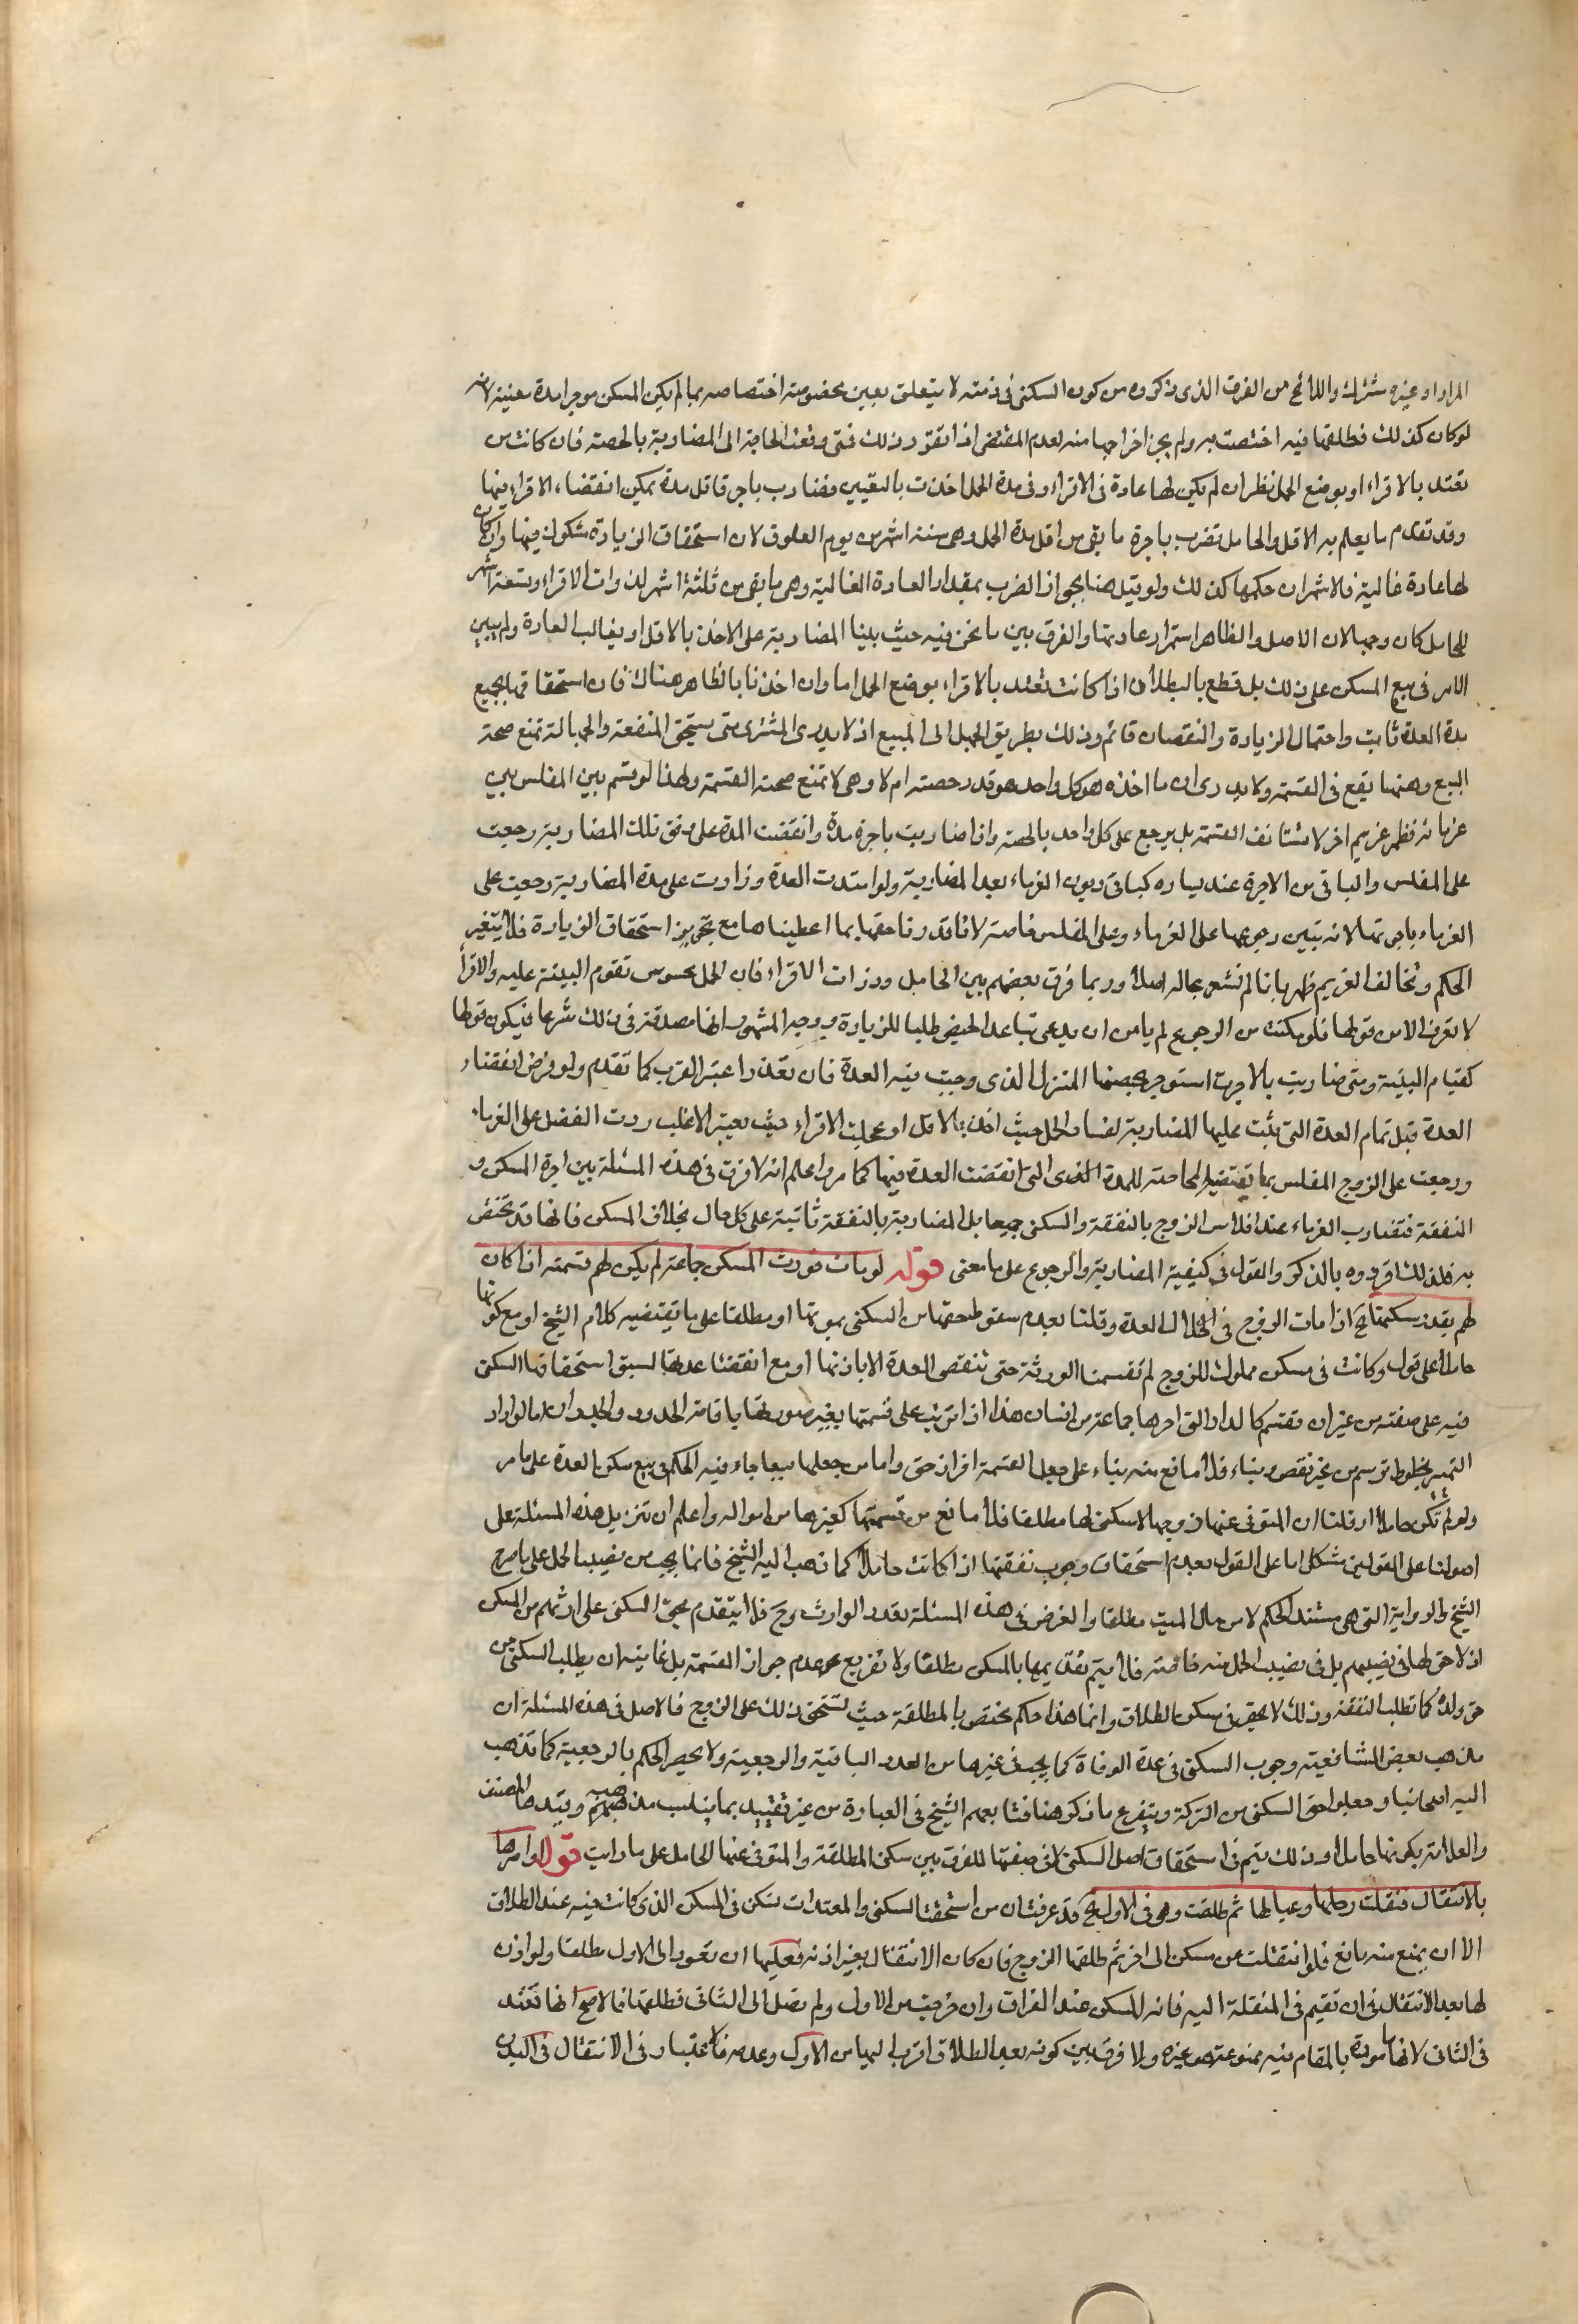 المراد او غيره مشترك واللائح من الفرق الذى ذكروه من كون السكنى فى ذمته لا يتعلق بعين مخصوصة اختصاصه بما لم يكن المسكن موجرا مدة معينة لانه
لو كان كذلك فطلقها فيه اختصت به ولم يجز اخراجها منه لعدم المقتضى اذا تقرر ذلك فمتى وقعت الحاجة الى المضاربة بالحصة فان كانت ممن
تعتد بالاقراء او بوضع الحمل نظر ان لم يكن لها عادة فى الاقراء وفى مدة الحمل اخذت باليقين فتضارب باجرة اقل مدة يمكن انقضاء الاقراء فيها
وقد تقدم ما يعلم به الاقل والحامل تضرب باجرة ما بقى من اقل مدة الحمل وهى ستة اشهر من يوم العلوق لان استحقاق الزيادة مشكوك فيها وان كان
لها عادة غالبة فالاشهر ان حكمها كذلك ولو قيل هنا بجواز الضرب بمقدار العادة الغالبة وهى ما بقى من ثلثة اشهر لذوات الاقراء وتسعة اشهر
للحامل كان وجها لان الاصل والظاهر استمرار عادتها والفرق بين ما نحن فيه حيث بنينا المضاربة على الاخذ بالاقل او بغالب العادة ولم يبن
الامر فى بيع المسكن على ذلك بل قطع بالبطلان اذا كانت تعتد بالاقراء بوضع الحمل اما وان اخذنا بالظاهر هناك فان استحقاقها بجميع
مدة العدة ثابت واحتمال الزيادة والنقصان قائم وذلك بطريق الجهل الى المبيع اذ لا يدرى المشترى متى يستحق المنفعة والجهالة تمنع صحة
البيع وهنا يقع فى القسمة ولا يدرى ان ما اخذه هو كل واحد هو قدر حصته ام لا وهى لا تمنع صحة القسمة ولهذا لو قسم بين المفلس بين
غرمائه فظهر غريم اخر لا تستانف القسمة بل يرجع على كل واحد بالحصة واذا ضاربت باجرة مدة وانقضت المدة على وفق تلك المضاربة رجعت
على المفلس والباقى من الاجرة عند يساره كباقى ديون الغرماء بعد المضاربة ولو امتدت العدة وزادت على مدة المضاربة رجعت على
الغرماء باجرتها لانه تبين رجوعها على الغرماء وعلى المفلس خاصة لانا قدرنا حقها بما اعطيناها مع تجويز استحقاق الزيادة فلا يتغير
الحكم وتخالف الغريم ظهر بانا لم نشعر بحاله اصلا وربما فرق بعضهم بين الحامل وذات الاقراء فان الحمل محسوس تقوم البينة عليه والاقرأ
لا تعرف الا من قولها فلو مكنت من الرجوع لم يامن ان يدعى تباعد الحيض طلبا للزيادة ووجه المشهور انها مصدقة فى ذلك شرعا فيكون قولها
كقيام البينة ومتى ضاربت بالاجرة استوجر بحصتها المنزل الذى وجبت فيه العدة فان تعذر اعتبر القرب كما تقدم ولو فرض انقضاء
العدة قبل تمام العدة التى بنيت عليها المضاربة لفساد الحمل حيث اخذ بالاقل او عجلت الاقراء حيث يعتبر الاغلب ردت الفضل على الغرماء
ورجعت على الزوج المفلس بما تقتضيه المحاصة للمدة الذى التى انقضت العدة فيها كما مر واعلم انه لا فرق فى هذه المسئلة بين اجرة المسكن و
النفقة فتضارب الغرماء عند افلاس الزوج بالنفقة والسكنى جميعا بل المضاربة بالنفقة ثابتة على كل حال بخلاف المسكن فانها قد تختص
به فلذلك افردوه بالذكر والقول فى كيفية المضاربة والرجوع على ما معنى قوله لو مات فورث المسكن جماعة لم يكن لهم قسمته اذا كان
لهم بقدر سكناها الخ اذا مات الزوج فى خلال العدة وقلنا بعدم سقوط حقها من السكنى بموتها او مطلقا على ما يقتضيه كلام الشيخ او مع كونها
حاملا على قول وكانت فى مسكن مملوك للزوج لم تقسمه الورثة حتى تنقضى العدة الا باذنها او مع انقضاء عدتها لسبق استحقاقها السكن
فيه على صفته من غير ان تقسم كالدار التى اجرها جماعة من انسان هذا اذا ترتب على قسمتها بغير صورتها باقامة الحدود والجدران اما لو اراد
التمييز بخطوط ترسم من غير نقص وبناء فلا مانع منه بناء على جعل القسمة افراز حق واما من جعلها بيعا جاء فيه الحكم فى بيع سكن العدة على ما مر
ولو لم تكن حاملا او قلنا ان المتوفى عنها زوجها لا سكنى لها مطلقا فلا مانع من قسمتها كغيرها من امواله واعلم ان تنزيل هذه المسئلة على
اصولنا على القولين مشكل اما على القول بعدم استحقاق وجوب نفقتها اذا كانت حاملا كما ذهب اليه الشيخ فانما يجب من نصيب الحمل على ما صرح
الشيخ والرواية التى هى مستند الحكم لا من مال الميت مطلقا والغرض فى هذه المسئلة تعدد الوارث وح فلا يتقدم بحق السكنى على ارثهم من المسكن
اذ لا حق لها فى نصيبهم بل فى نصيب الحمل منه خاصة فلا يتم تقديمها بالمسكن مطلقا ولا تفريع عدم جواز القسمة بل غايته ان يطلب السكنى من
حق ولدها كما تطلب النفقة وذلك لا يحق فى مسكن الطلاق وانما هذا حكم مختص بالمطلقة حيث تستحق ذلك على الزوج فالاصل فى هذه المسئلة ان
مذهب بعض الشافعية وجوب السكنى فى عدة الوفاة كما يجب فى غيرها من العدد الباقية والرجعية ولا يحصر الحكم بالرجعية كما تذهب
اليه اصحابنا وجعلوا حق السكنى من التركة ويتفرع ما ذكر هنا فتابعهم الشيخ فى العبارة من غير تقييد بما يناسب مذهبهم وقيدها المصنف
والعلامة بكونها حاملا وذلك يتم فى استحقاق اصل السكنى لا فى صفتها للفرق بين سكنى المطلقة والمتوفى عنها الحامل على ما رايت قوله لو امرها
بالانتقال فنقلت رحلها وعيالها ثم طلقت وهى فى الاول الخ قد عرفت ان من استحقت السكنى والمعتدات تسكن فى المسكن الذى كانت فيه عند الطلاق
الا ان يمنع منه مانع فلو انتقلت من مسكن الى اخر ثم طلقها الزوج فان كان الانتقال بغير اذنه فعليها ان تعود الى الاول مطلقا ولو اذن
لها بعد الانتقال فى ان تقيم فى المنقلة اليه فانه المسكن عند الفراق وان خرجت من الاول ولم تصل الى الثانى فطلقها فالاصح انها تعتد
فى الثانى لانها مامورة بالمقام فيه ممنوعة من غيره ولا فرق بين كونه بعد الطلاق اقرب اليها من الاول وعدمه فالاعتبار فى الانتقال فى البدن